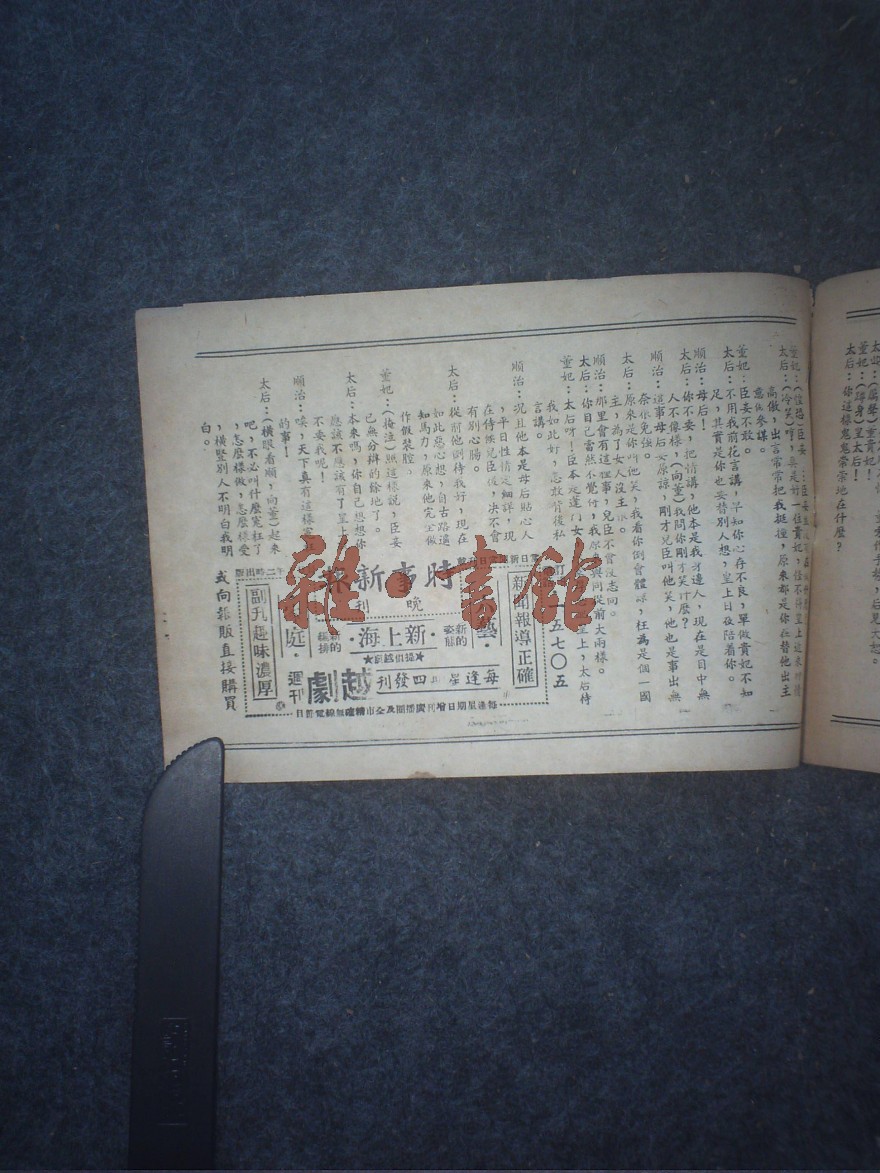 太后:(厲聲)董貴妃!
董妃:(轉身)皇太后!
太后:你這樣鬼鬼祟祟地在什麼?
董妃:(惶恐)臣妾
太后:(冷笑)哼,真是好一位貴妃,怪不得皇上近來
高傲,出言常常把我挺撞,原來都是你在替他出主
意做參謀。
董妃:臣妾不敢。
太后:不用我前花言講,早知你心存不良,單做貴妃不知
足,其實是你也妄替別人想,皇上日夜陪着你。
順治:母后!
太后:你不要,把情講,他本是我身邊人,現在是目中無
人不像樣,(向董)我問你剛才笑什麼?
順治:這事母后要原諒,剛才兒臣叫他笑,他也是事出無
奈很免強。
太后:原來是你叫他笑,我看你倒會體諒,枉為是個一國
主,為了女人沒主張。
順治:那里會有這種事,兒臣不會沒志向。
太后:你自己當然不覺得,我原是與同從前大兩樣。
董妃:太后呀!臣本是蓬門女,
皇上,太后待
我如此好,怎敢背後私
言講。
順治:況且他本是母后貼心人
,平日性情是細詳,現
在侍候兒臣後,決不會
有別心腸。
太后:從前他倒待我好,現在
如此惡心想,自古路遙
知馬力,原來他完全做
作假裝腔。
董妃:(掩泣)照這樣說,臣妾
已無分辨的餘地了。
太后:本來嗎,你自己想想你
應該不應該有了皇上
不要我呢!
順治:唉,天下真有這樣寃
的事!
太后:(橫眼看順,向董)起來
吧,不必叫什麼寃枉了
,怎麼樣做,怎麼樣受
,橫豎別人不明白我明
白。
五七〇五
新聞報導正確
時事新報
晚刊
藝·
新的姿態
·新上海·
新的編排
庭·
★提供越劇★
每逢星期四發刊
越劇
週刊
副刊趣味濃厚
每逢星期日增刊廣播圈及全市精確無線電節目
或向報販直接購買
雜·書館